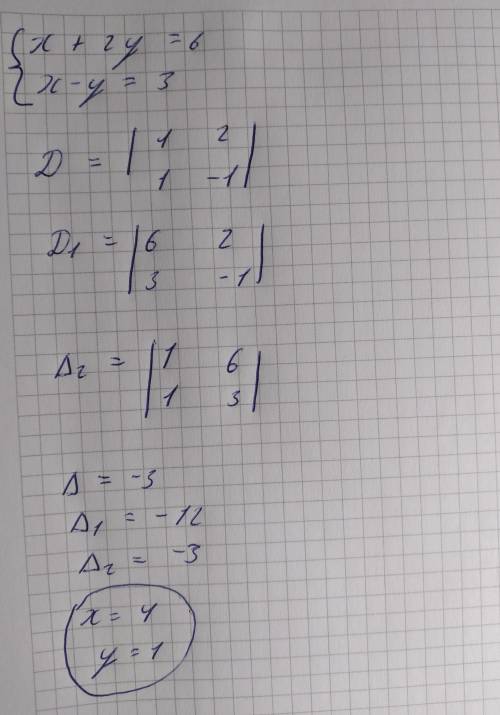 { x + 2y = 6
x - y = 3
D = | 1 2
1 -1 |
D1 = | 6 2
3 -1 |
Δ2 = | 1 6
1 3 |
Δ = -3
Δ1 = -12
Δ2 = -3
x = 4
y = 1